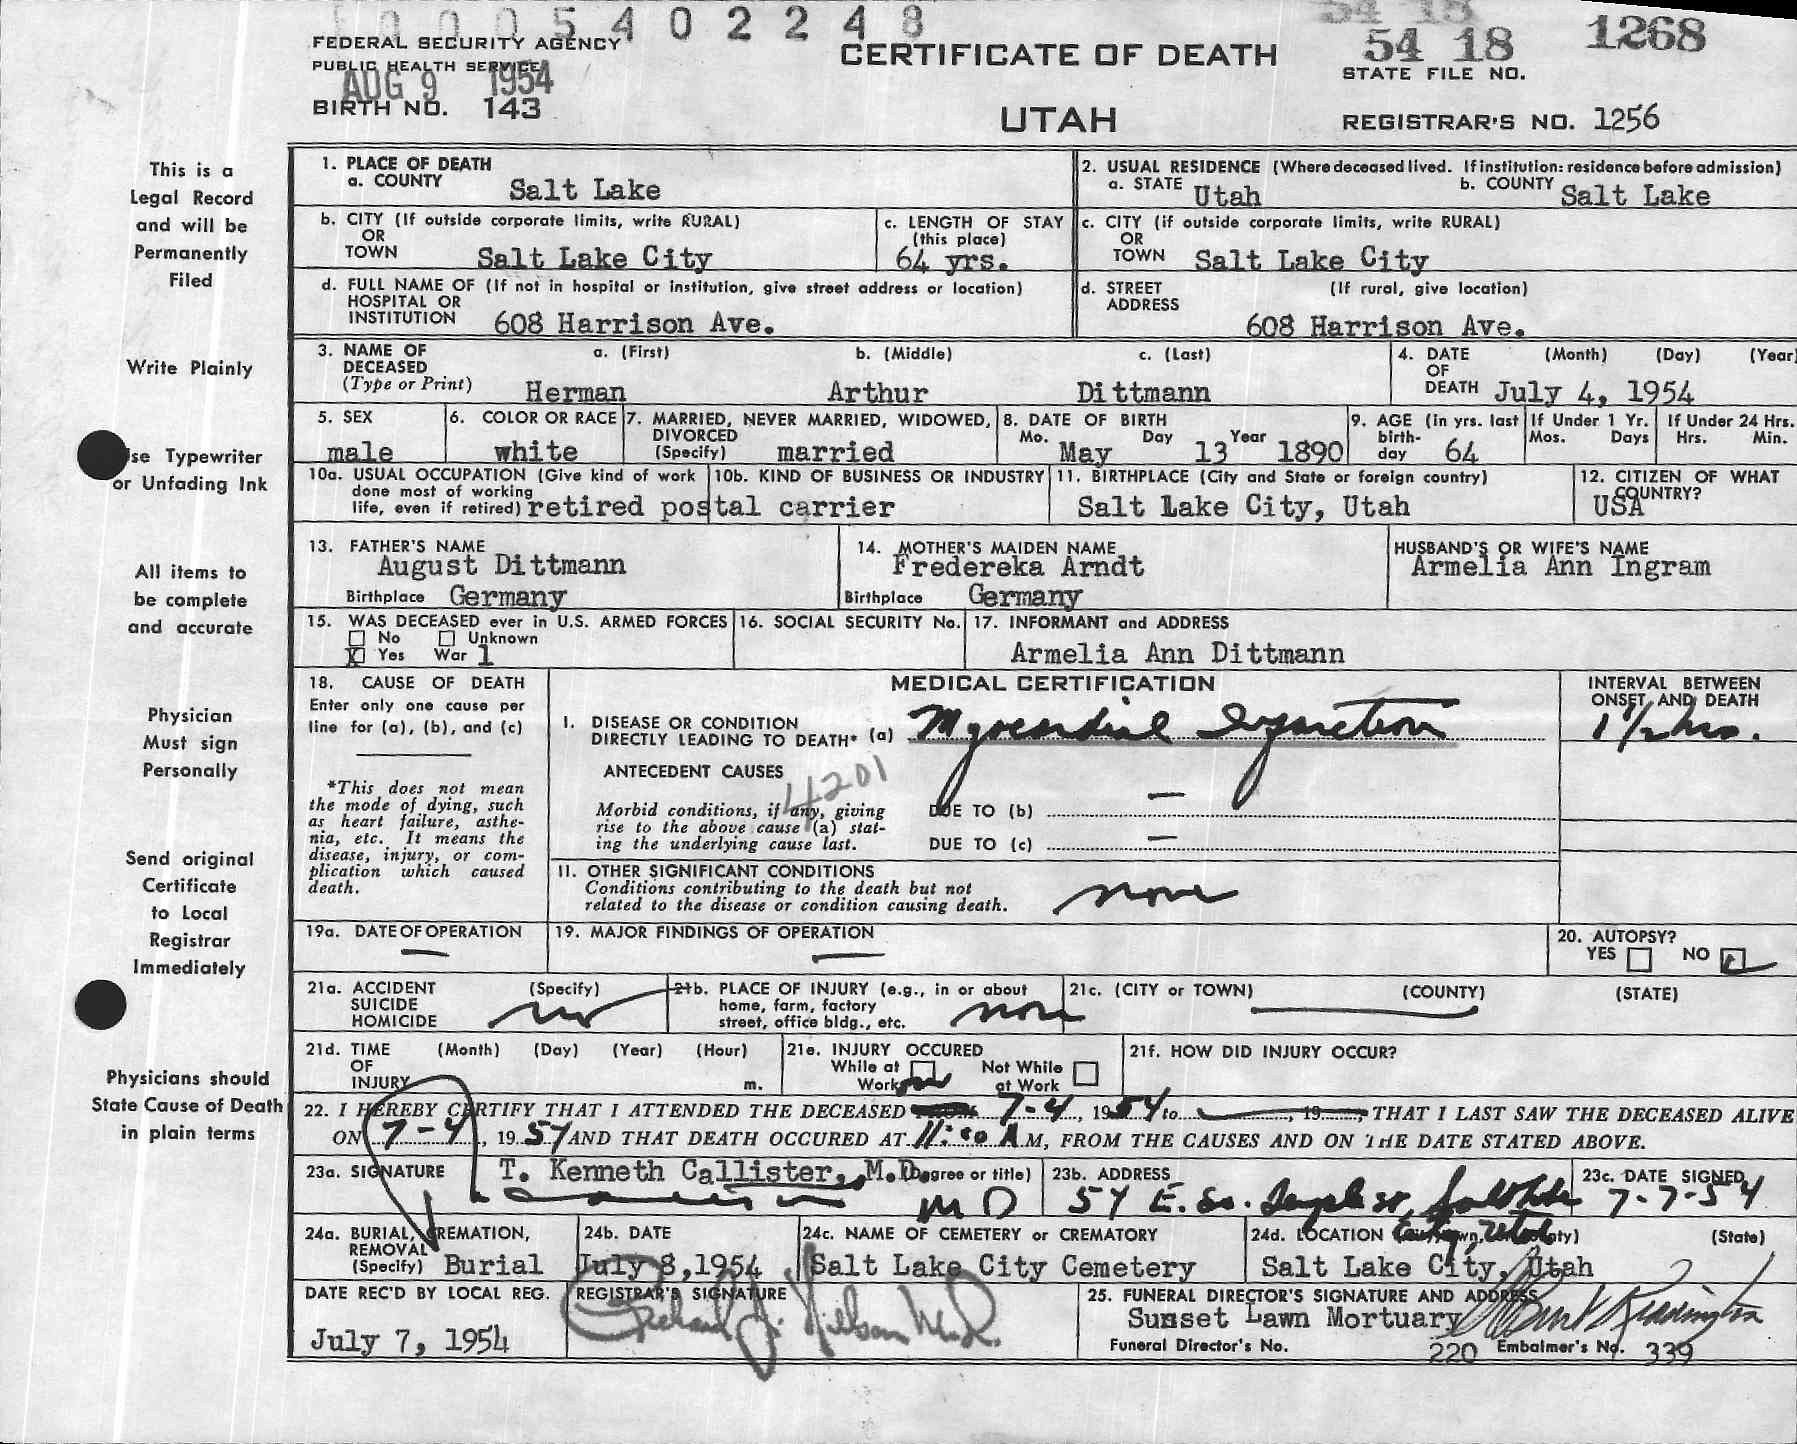 0005402248
54 18
FEDERAL SECURITY AGENCY
PUBLIC HEALTH SERVICE
AUG 9 1954
BIRTH NO. 143
CERTIFICATE OF DEATH
UTAH
54 18 1268
STATE FILE NO.
REGISTRAR'S NO. 1256
This is a
Legal Record
and will be
Permanently
Filed
Write Plainly
se Typewriter
or Unfading Ink
All items to
be complete
and accurate
Physician
Must sign
Personally
Send original
Certificate
to Local
Registrar
Immediately
Physicians should
State Cause of Death
in plain terms
1. PLACE OF DEATH
a. COUNTY Salt Lake
2. USUAL RESIDENCE (Where deceased lived. If institution: residence before admission)
a. STATE Utah b. COUNTY Salt Lake
b. CITY (If outside corporate limits, write RURAL)
OR
TOWN Salt Lake City
c. LENGTH OF STAY
(this place)
64 yrs.
c. CITY (if outside corporate limits, write RURAL)
OR
TOWN Salt Lake City
d. FULL NAME OF (If not in hospital or institution, give street address or location)
HOSPITAL OR
INSTITUTION 608 Harrison Ave.
d. STREET (If rural, give location)
ADDRESS
608 Harrison Ave.
3. NAME OF a. (First) b. (Middle) c. (Last)
DECEASED
(Type or Print) Herman Arthur Dittmann
4. DATE (Month) (Day) (Year)
OF
DEATH July 4, 1954
5. SEX
male
6. COLOR OR RACE
white
7. MARRIED, NEVER MARRIED, WIDOWED,
DIVORCED
(Specify) married
8. DATE OF BIRTH
Mo. Day Year
May 13 1890
9. AGE (in yrs. last
birth-
day 64
If Under 1 Yr.
Mos. Days
If Under 24 Hrs.
Hrs. Min.
10a. USUAL OCCUPATION (Give kind of work
done most of working
life, even if retired) retired postal carrier
10b. KIND OF BUSINESS OR INDUSTRY
11. BIRTHPLACE (City and State or foreign country)
Salt Lake City, Utah
12. CITIZEN OF WHAT
COUNTRY?
USA
13. FATHER'S NAME
August Dittmann
Birthplace Germany
14. MOTHER'S MAIDEN NAME
Fredereka Arndt
Birthplace Germany
HUSBAND'S OR WIFE'S NAME
Armelia Ann Ingram
15. WAS DECEASED ever in U.S. ARMED FORCES
No Unknown
X Yes War 1
16. SOCIAL SECURITY No.
17. INFORMANT and ADDRESS
Armelia Ann Dittmann
18. CAUSE OF DEATH
Enter only one cause per
line for (a), (b), and (c)
*This does not mean
the mode of dying, such
as heart failure, asthe-
nia, etc. It means the
disease, injury, or com-
plication which caused
death.
MEDICAL CERTIFICATION
INTERVAL BETWEEN
ONSET AND DEATH
I. DISEASE OR CONDITION
DIRECTLY LEADING TO DEATH* (a) Myocardial Infarction 1 1/2 hrs.
ANTECEDENT CAUSES
4201
Morbid conditions, if any, giving
rise to the above cause (a) stat-
ing the underlying cause last.
DUE TO (b) —
DUE TO (c) —
II. OTHER SIGNIFICANT CONDITIONS
Conditions contributing to the death but not
related to the disease or condition causing death.
none
19a. DATE OF OPERATION
—
19. MAJOR FINDINGS OF OPERATION
—
20. AUTOPSY?
YES NO
21a. ACCIDENT (Specify)
SUICIDE
HOMICIDE no
21b. PLACE OF INJURY (e.g., in or about
home, farm, factory
street, office bldg., etc. none
21c. (CITY or TOWN) (COUNTY) (STATE)
21d. TIME (Month) (Day) (Year) (Hour)
OF
INJURY m.
21e. INJURY OCCURED
While at Not While
Work at Work
21f. HOW DID INJURY OCCUR?
22. I HEREBY CERTIFY THAT I ATTENDED THE DECEASED 7-4, 1954 to 19 , THAT I LAST SAW THE DECEASED ALIVE
ON 7-4, 1954 AND THAT DEATH OCCURED AT 11:00 A M, FROM THE CAUSES AND ON THE DATE STATED ABOVE.
23a. SIGNATURE T. Kenneth Callister, M.D. (Degree or title)
M D
23b. ADDRESS
54 E. So. Temple St,
23c. DATE SIGNED
7-7-54
24a. BURIAL, CREMATION,
REMOVAL
(Specify) Burial
24b. DATE
July 8, 1954
24c. NAME OF CEMETERY or CREMATORY
Salt Lake City Cemetery
24d. LOCATION (City, town, or county) (State)
Salt Lake City, Utah
DATE REC'D BY LOCAL REG.
July 7, 1954
REGISTRAR'S SIGNATURE
Richard J. Nielson M.D.
25. FUNERAL DIRECTOR'S SIGNATURE AND ADDRESS
Sunset Lawn Mortuary
Funeral Director's No. 220 Embalmer's No. 339